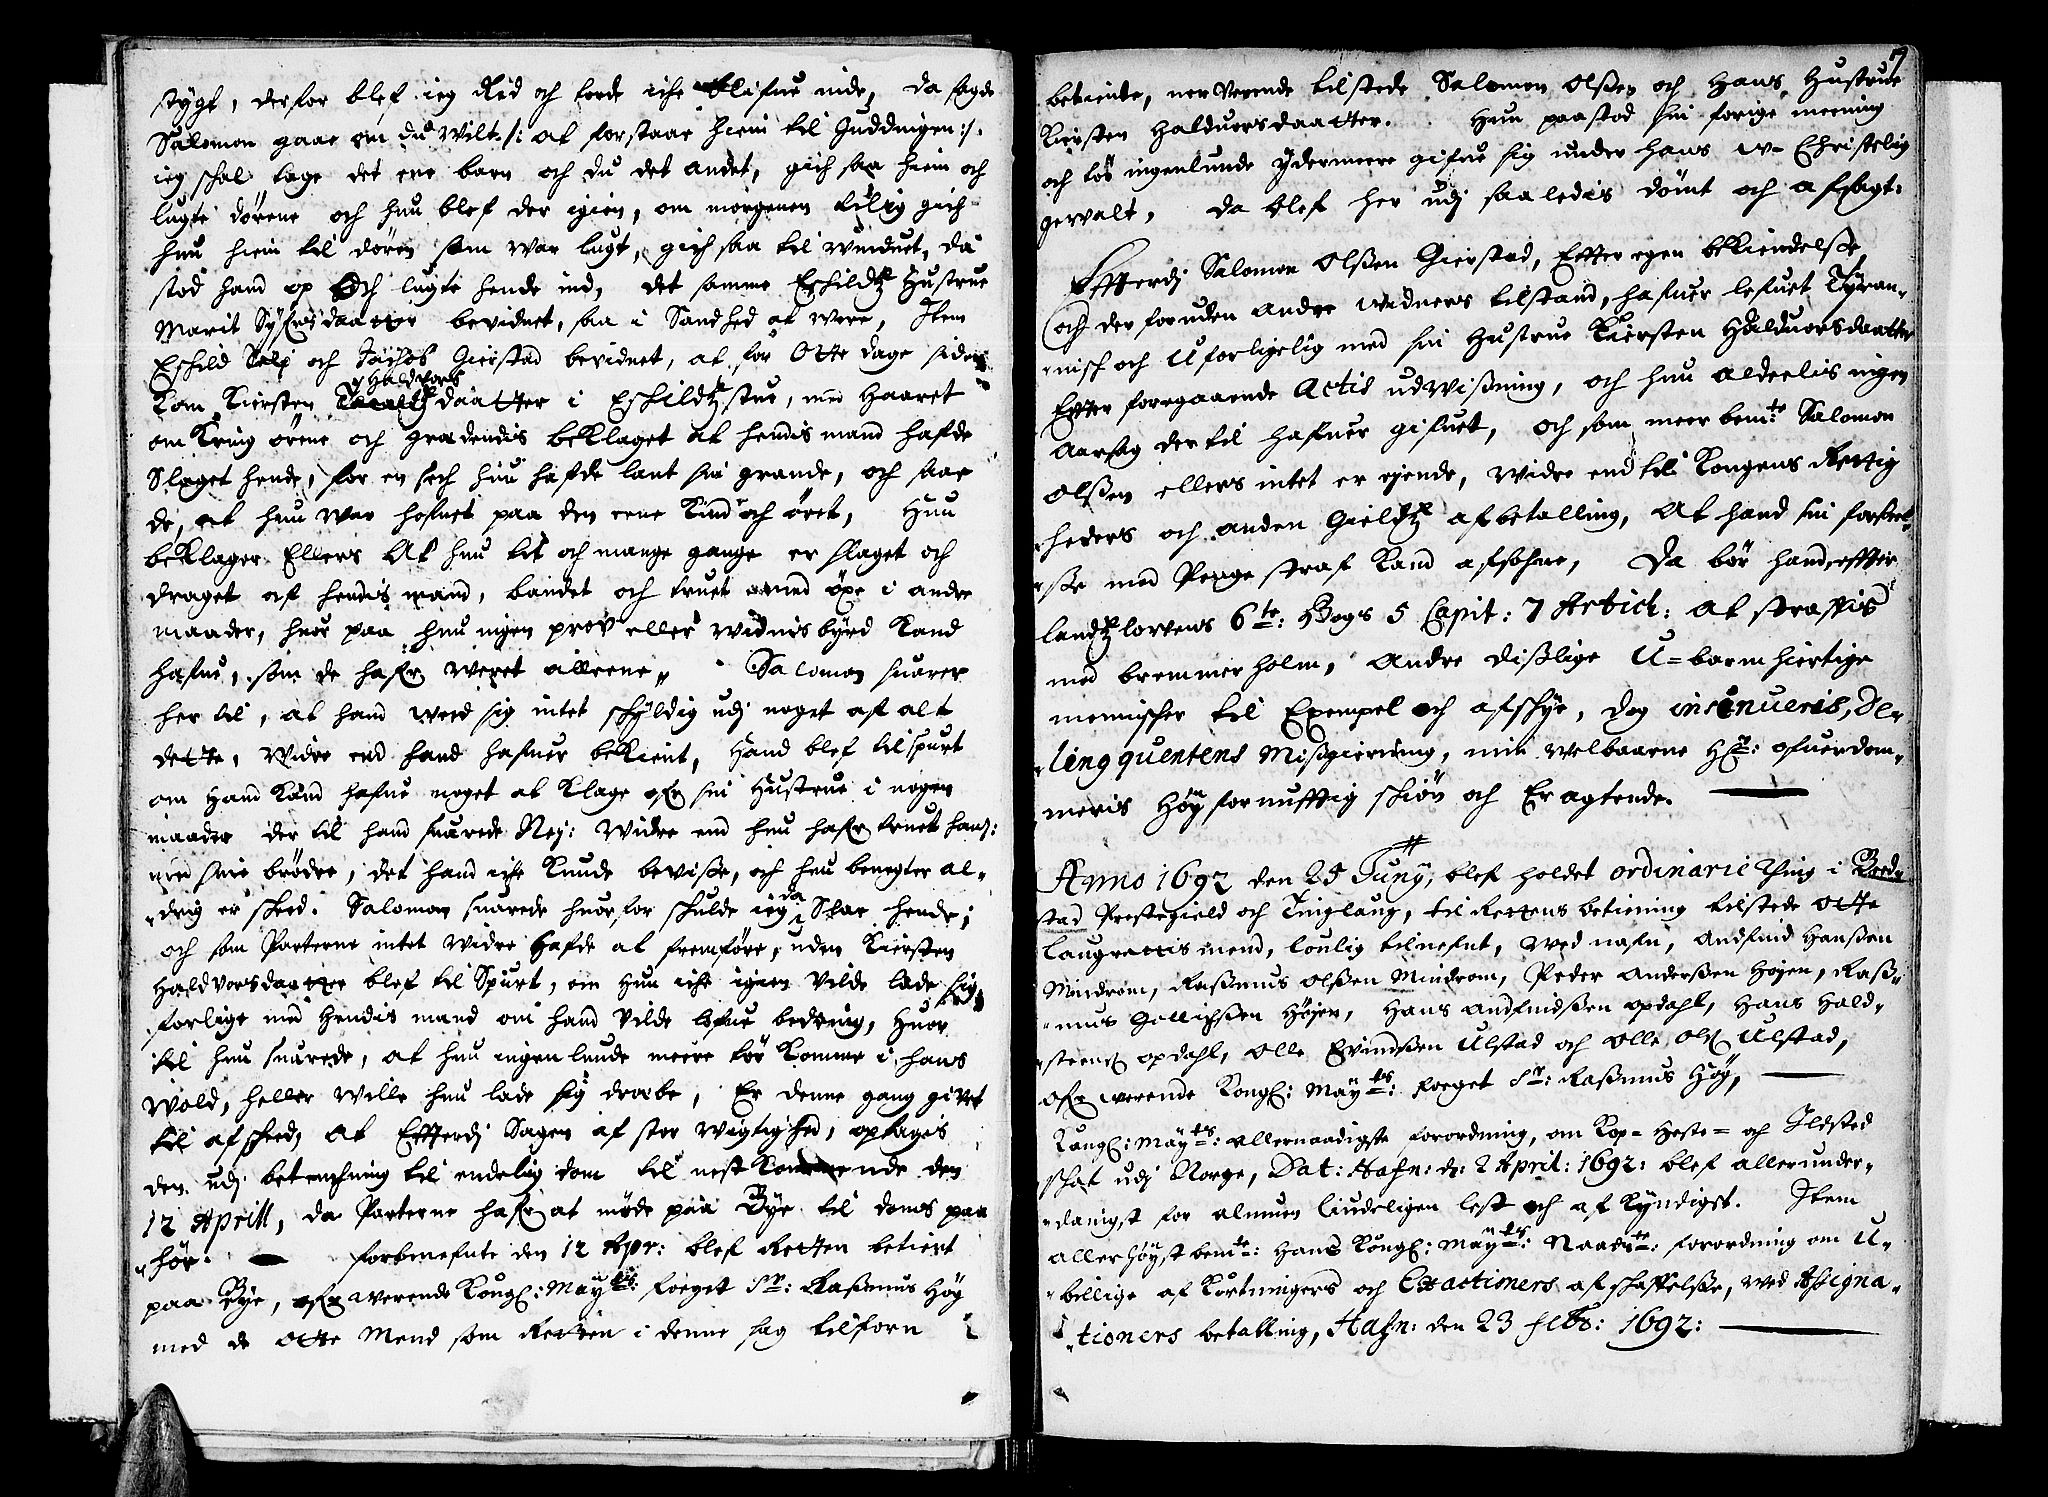 stygt, derfor blef ieg Red och torde iche blifue inde, da sagde
Salomon gaae om du wilt /: at forstaae hiem til :/.
ieg schal tage det ene barn och du det andet, gich saa hiem och
lugte dørene och hun blef der igien, om morgenen tilig gich
hun hiem til døren som war lugt, gich saa til winduet, da
stod hand op Och lugte hende ind, det samme Eschildtz Hustrue
Marit daatter bevidnet, saa i Sandhed at were, Item
Eschild Selj och Gierstad bevidnet, at for Otte dage siden
Kom Kiersten Haldvors daatter i Eschildtz stue, med Haaret
om Kring ørene och grædendis beklaget at hendis mand hafde
Slaget hende, for en sech hun hafde lant sin grande, och saae
de, at hun war hofnet paa den eene Kind och øret, Hun
beklager Ellers At hun tit och mange gange er slaget och
draget af hendis mand, bandet och truet med øxe i andre
maader, huor paa hun ingen prov eller widnisbyrd Kand
hafue, som de hafr weret alleene,, Salomon suarer
her til, at hand weed sig intet schyldig udj noget af alt
dette, widre end hand hafuer bekient, Hand blef tilspurt
om Hand Kand hafue noget at Klage ofr sin Hustrue i nogen
maader der til hand suarede Nej: widre end hun hafr truet hans:
med sine brødre, det hand iche Kunde bevisse, och hun benegter al-
drig er scheed. Salomon suarede huorfor schulde ieg da Slae hende;
och som Parterne intet widre Hafde at fremføre, uden Kiersten
Haldvorsdaatter blef til Spurt, om Hun iche igien Vilde lade sig
forlige med Hendis mand om hand Vilde lofue bedring, Huor
til hun suarede, at hun ingenlunde meere tør Komme i hans
wold, heller wille hun lade sig dræbe, Er denne gang givet
til afscheed, At Effterdj Sagen af stor wigtighed, optagis
den udj betenchning til endelig dom til nest Kommende den
12 Aprill, da Parterne hafr at møde paa Bye til doms paa
hør. Forbenefnte den 12 Apr: blef Retten betient
paa Bye, ofr werende Kongl: Maytz: Foeget Sr: Rasmus Høy
med de otte Mend som Retten i denne sag tilforn
7
betiente, nerverende tilstede Salomon Olssen och Hans Hustrue
Kiersten Halduorsdaatter. Hun paastod sin forige meening
och tør ingenlunde ydermeere gifue sig under hans w-Christelig
gervalt, da blef her udj saaledis dømt och afsagt:
Effterdj Salomon Olssen Gierstad, Effter egen bekiendelsse,
och der foruden andre widners tilstand, hafuer lefuet Tyran-
nisch och Uforligelig med sin Hustrue Kiersten Halduorsdaatter
Effter foregaaende Actis udwissning, och hun alderlis ingen
Aarsag der til hafuer gifuet, och som meer bemte: Salomon
Olssen ellers intet er ejende, widre end til Kongens Rettig
heders och anden Gieldtz afbetalling, At hand sin forseel-
sse med Penge straf Kand afsohne, Da bør hand, effter
landtzlowens 6te: Bogs 5 Capit: 7 Artich: at straffis
med bremmerholm, Andre disslige U=barmhiertige
mennischer til Exempel och afschye, dog insinueris, De-
lingquentens Missgierning, min welbaarne Hr: ofuerdom-
meris Høyfornufftig schiøn och Eragtende.
Anno 1692 den 25 Juny, blef holdet ordinarie Ting i
stad Prestegield och Tinglaug, til Rettens betiening tilstede otte
laugrettis mend, loulig tilnefnt, wed nafn, Andfind Hanssen
Mindrom, Rasmus Olssen Mindrom, Peder Anderssen Højen, Rass-
mus Gellichssen Højen, Hans Andfindssen opdahl, Hans Hald-
opdahl, Olle Evindssen Ulstad och Olle Ols Ulstad,
ofr werende Kongl: Mayts: foeget Sr: Rasmus Høy,
Kongl: Mayts: allernaadigste forordning, om Kop- Heste= och Ildsted
schat udj Norge, Dat: Hafn: d: 2 April: 1692: blef allerunder-
danigst for almuen liudeligen lest och af Kyndigst. Item
allerhøystbemte: Hans Kongl: Mayts: Naadste: forordning om U-
billige af Kortningers och Exactioners afschaffelsse, wed Assigna-
tioners betalling, Hafn: den 23 febr: 1692: